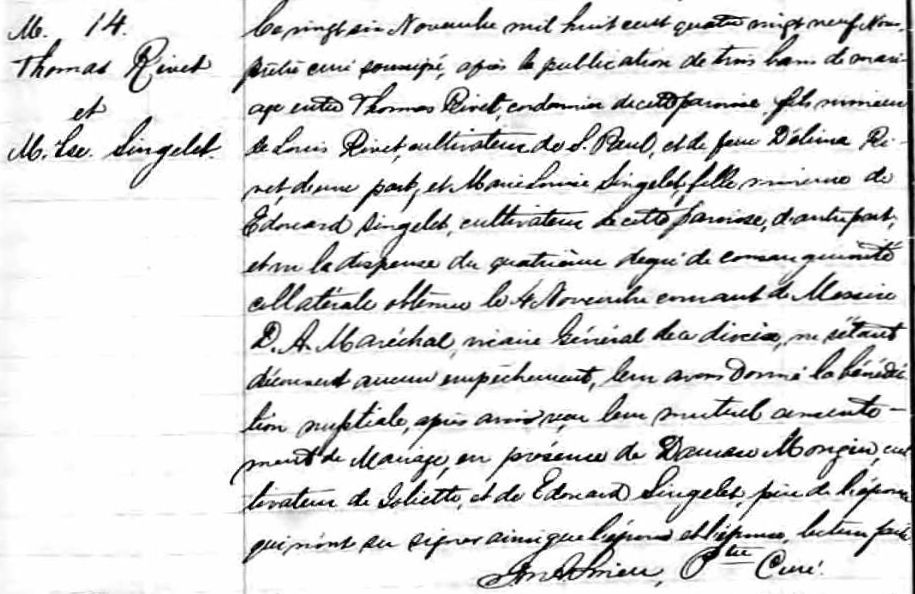 M. 14.
Thomas Rivet
et
M. Lse. Singelet.
Le vingt six Novembre mil huit cent quatre vingt neuf Nous,
prêtre curé soussigné, après la publication de trois bans de mari-
age entre Thomas Rivet, cordonnier de cette paroisse, fils mineur
de Louis Rivet, cultivateur de S. Paul, et de feue Délima Ri-
vet, d'une part, et Marie Louise Singelet, fille mineure de
Edouard Singelet, cultivateur de cette paroisse, d'autre part,
et vu la dispense du quatrième degré de consanguinité
collatérale obtenue le 4 Novembre courant de Messire
D. A. Maréchal, vicaire Général de ce diocèse, ne s'étant
découvert aucun empêchement, leur avons donné la bénédic
tion nuptiale, après avoir reçu leur mutuel consente-
ment de Mariage, en présence de Damase Mongin, cul
tivateur de Joliette, et de Edouard Singelet, père de l'épouse
qui n'ont su signer ainsi que l'époux et l'épouse, lecture faite
Ptre Curé.